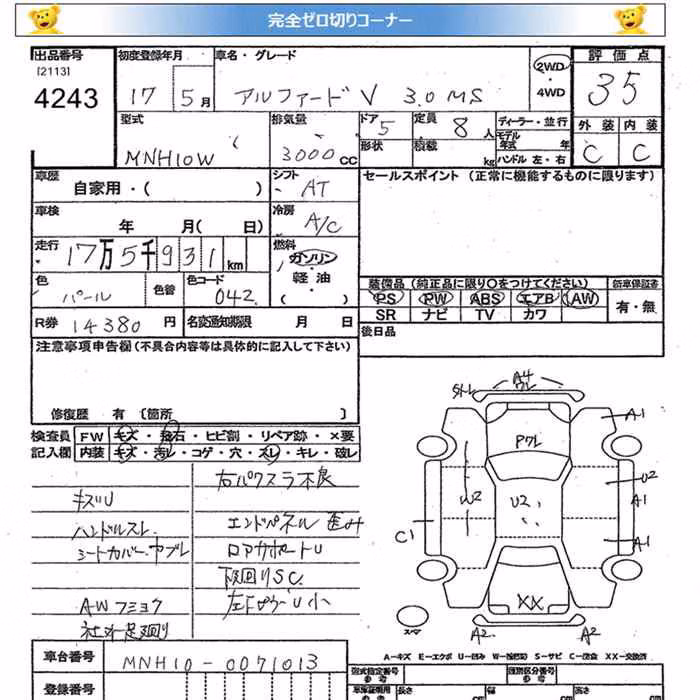 完全ゼロ切りコーナー
出品番号 初度登録年月 車名・グレード 2WD・4WD 評価点
[2113]
4243 17 5月 アルファードV 3.0 MS 35
型式 排気量 ドア 5 定員 8人 ディーラー・並行 外装 内装
MNH10W 3000cc 形状 積載 kg モデル年式 年 C C
ハンドル 左・右
車歴 シフト セールスポイント (正常に機能するものに限ります)
自家用・( ) AT
車検 冷房
年 月( 日) A/C
走行 燃料
17万5千931km ガソリン・軽油・( )
色 色替 色コード 装備品 (純正品に限り○をつけてください) 新車保証書
パール 042 PS PW ABS エアB AW 有・無
SR ナビ TV カワ
R券 14380円 名変通知期限 月 日 後日品
注意事項申告欄 (不具合内容等は具体的に記入して下さい)
修復歴 有 [箇所 ]
検査員記入欄 FW キズ・飛石・ヒビ割・リペア跡・×要
内装 キズ・汚レ・コゲ・穴・スレ・キレ・破レ
右パワスラ不良
キズU
ハンドルスレ エンドパネル歪み
シートカバー ヤブレ ロアサポートU
下回りSC
AWフミョク
社外足廻り
A4
A1
PクU
U2
W2
U2
A1
C1
A1
XX
スマ A2 A2
A-キズ E-エクボ U-凹み W-板跡 S-サビ C-腐食 XX-交換済
車台番号 MNH10-0071013
登録番号
型式指定番号 参考 類別区分番号 参考
長さ cm 幅 cm 高さ cm